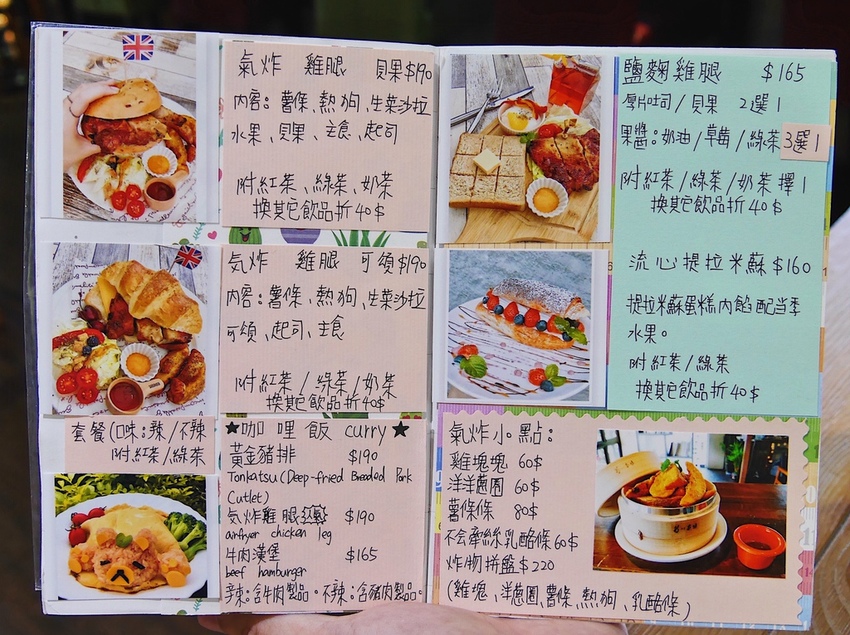 氣炸 雞腿 貝果$190
內容：薯條、熱狗、生菜沙拉
水果、貝果、主食、起司
附紅茶、綠茶、奶茶
換其它飲品折40$
気炸 雞腿 可頌$190
內容：薯條、熱狗、生菜沙拉
可頌、起司、主食
附紅茶/綠茶/奶茶
換其它飲品折40$
套餐(口味：辣/不辣
附紅茶/綠茶
★咖哩飯 curry★
黃金豬排 $190
Tonkatsu(Deep-fried Breaded Pork
Cutlet)
気炸雞腿 $190
airfryer chicken leg
牛肉漢堡 $165
beef hamburger
辣：含牛肉製品。不辣：含豬肉製品。
鹽麴雞腿 $165
厚片吐司/貝果 2選1
果醬：奶油/草莓/綠茶3選1
附紅茶/綠茶/奶茶擇1
換其它飲品折40$
流心提拉米蘇$160
提拉米蘇蛋糕內餡配當季
水果。
附紅茶/綠茶
換其它飲品折40$
氣炸小點：
雞塊塊 60$
洋洋蔥圈 60$
薯條條 80$
不會牽絲乳酪條60$
炸物拼盤$220
(雞塊、洋蔥圈、薯條、熱狗、乳酪條)